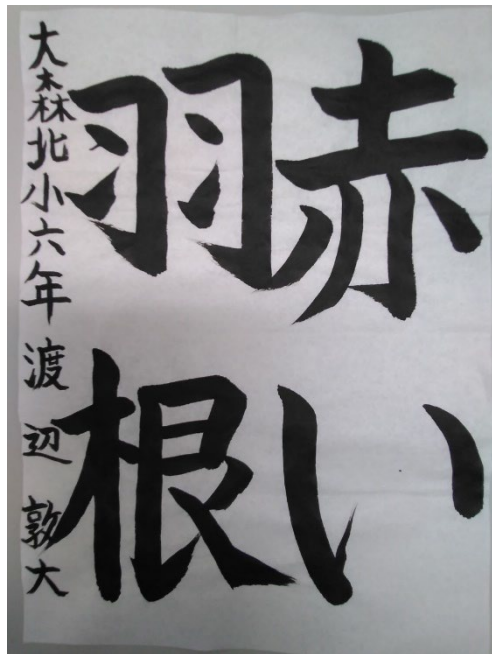 赤い
羽根
大森北小六年 渡辺 敦大